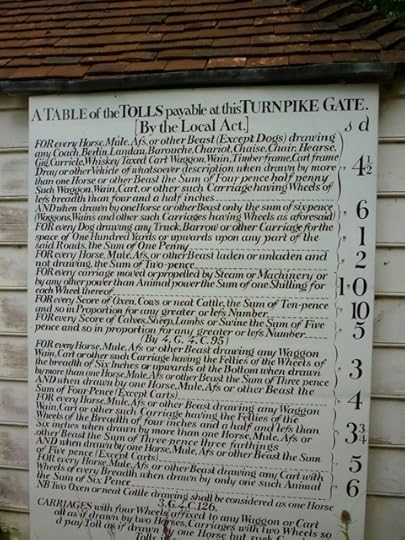 A TABLE of the TOLLS payable at this TURNPIKE GATE.
[By the Local Act.]
s d
FOR every Horse, Mule, Aſs, or other Beast (Except Dogs) drawing
any Coach, Berlin, Landau, Barouche, Chariot, Chaise, Chair, Hearse,
Gig, Curricle, Whiskey, Taxed Cart, Waggon, Wain, Timber frame, Cart frame
Dray or other Vehicle of whatsoever description when drawn by more
than one Horse or other Beast the Sum of Four pence half penny
Such Waggon, Wain, Cart, or other such Carriage having Wheels of
leſs breadth than four and a half inches 4½
AND when drawn by one Horse or other Beast only the sum of six pence
(Waggons, Wains and other such Carriages having Wheels as aforesaid) 6
FOR every Dog drawing any Truck, Barrow or other Carriage for the
space of One Hundred Yards or upwards upon any part of the
said Roads, the Sum of One Penny 1
FOR every Horse, Mule, Aſs, or other Beast laden or unladen and
not drawing, the Sum of Two-pence 2
FOR every carriage moved or propelled by Steam or Machinery or
by any other power than Animal power the Sum of One Shilling for
each Wheel thereof 1·0
FOR every Score of Oxen, Cows or neat Cattle, the Sum of Ten-pence
and so in Proportion for any greater or leſs Number 10
FOR every Score of Calves, Sheep, Lambs or Swine the Sum of Five
pence and so in proportion for any greater or leſs Number 5
(By 4, G. 4, C. 95)
FOR every Horse, Mule, Aſs or other Beast drawing any Waggon
Wain, Cart or other such Carriage having the Fellies of the Wheels of
the breadth of Six Inches or upwards at the Bottom when drawn
by more than one Horse, Mule, Aſs or other Beast the Sum of Three pence 3
AND when drawn by one Horse, Mule, Aſs or other Beast the
Sum of Four-Pence (Except Carts) 4
FOR every Horse, Mule, Aſs or other Beast drawing any Waggon
Wain, Cart or other such Carriage having the Fellies of the
Wheels of the Breadth of four inches and a half and leſs than
Six inches when drawn by more than one Horse, Mule, Aſs or
other Beast the Sum of Three-pence three farthings 3¾
AND when drawn by one Horse, Mule, Aſs or other Beast the Sum
of Five pence (Except Carts) 5
FOR every Horse, Mule, Aſs or other Beast drawing any Cart with
Wheels of every Breadth when drawn by only one such Animal
the Sum of Six Pence 6
NB Two Oxen or neat Cattle drawing shall be considered as one Horse
3, G. 4, C. 126.
CARRIAGES with four Wheels affixed to any Waggon or Cart
all as if drawn by two Horses, Carriages with two Wheels so
d pay Toll as if drawn by one Horse but such C
Tolls